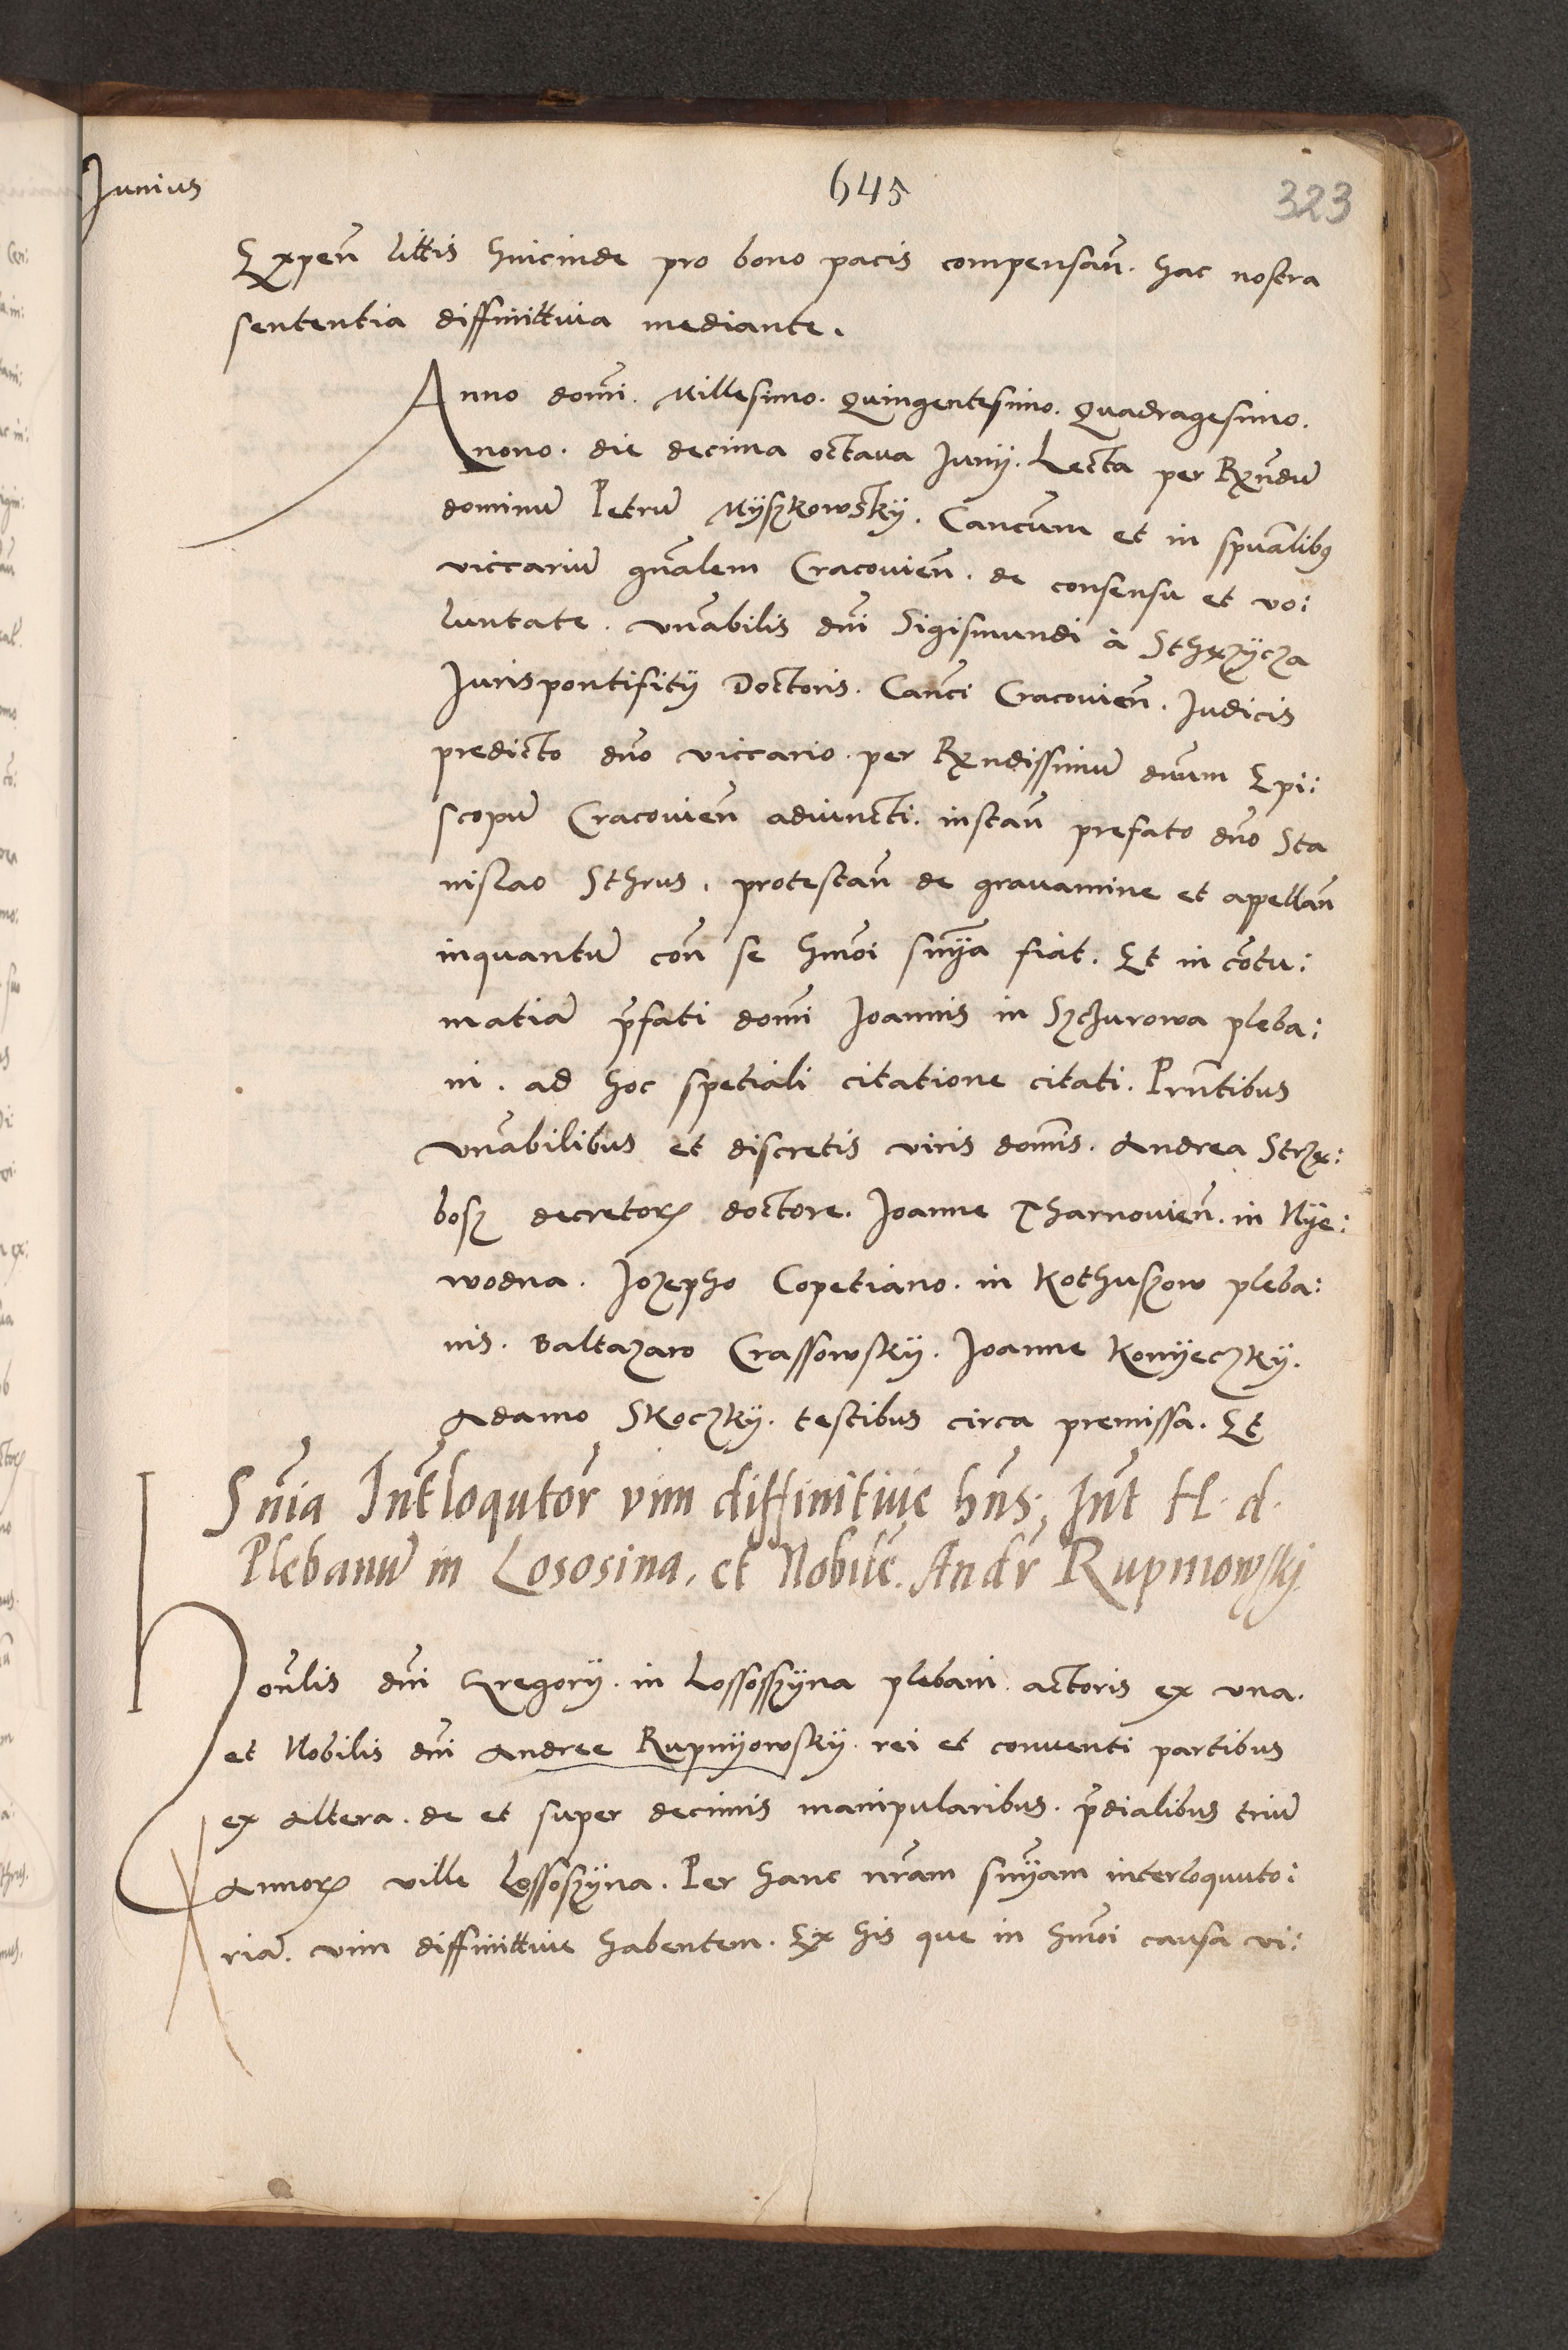 Junius
645
323
Expen̄ littis hincinde pro bono pacis compensan̄. hac nostra
sententia diffinittiuia mediante.
Anno domi. Millesimo. Quingentesimo. Quadragesimo.
nono. die decima octaua Junij. Lecta per Rx̄ndū
dominū Petrū Myszkowsky. Cancūm et in spūalibus
viccariū gn̄alem Cracouien̄. de consensu et vo:
luntate. vn̄abilis dn̄i Sigismundi à Sthezÿcza
Jurispontifitÿ Doctoris. Canci Cracouien̄. Judicis
predicto dn̄o viccario. per Rx̄ndissimū dn̄um Epi:
scopū Cracouien̄ adiuncti. instan̄ prefato dn̄o Sta
nislao Sthrus. protestan̄ de grauamine et apellan̄
inquantū con̄ se hmōi sn̄ÿa fiat. Et in contu:
matiā p̄fati domi Joannis in Szchurowa pleba:
ni. ad hoc spetiali citatione citati. Prn̄tibus
vn̄abilibus et discretis viris domīs. Andrea Strze:
bosz decretorꝝ doctore. Joanne Tharnouien̄. in Nÿe:
wodna. Jozepho Copetiano. in Kothuszow pleba:
nis. Baltazaro Crassowskÿ. Joanne Konÿeczkÿ.
Adamo Skoczkÿ. testibus circa premissa. Et
Sn̄ia Int̄loqutor̄ vim diffinitiuę hn̄s; Int̄ H. d.
Plebanū in Lososina, et Nobilē. Andr̄ Rupniowskj
Honr̄lis dn̄i Gregorÿ. in Lossosszÿna plebani. actoris ex vna.
et Nobilis dn̄i Andree Rupnÿowskÿ. rei et conuenti partibus
ex altera. de et super decimis manipularibus. p̄dialibus triū
Annorꝝ ville Lossoszÿna. Per hanc nr̄am sn̄ÿam interloquuto:
riā. vim diffinittiue habentem. Ex his que in hmōi causa vi: